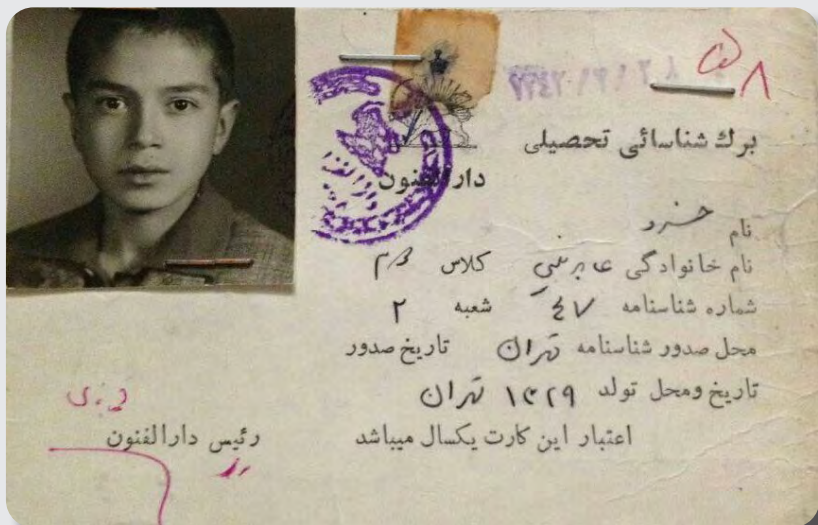 ۸
برگ شناسائی تحصیلی
دارالفنون
نام خسرو
نام خانوادگی کلاس
شماره شناسنامه شعبه ۲
محل صدور شناسنامه تهران تاریخ صدور
تاریخ ومحل تولد ۱۳۲۹ تهران
اعتبار این کارت یکسال میباشد
رئیس دارالفنون